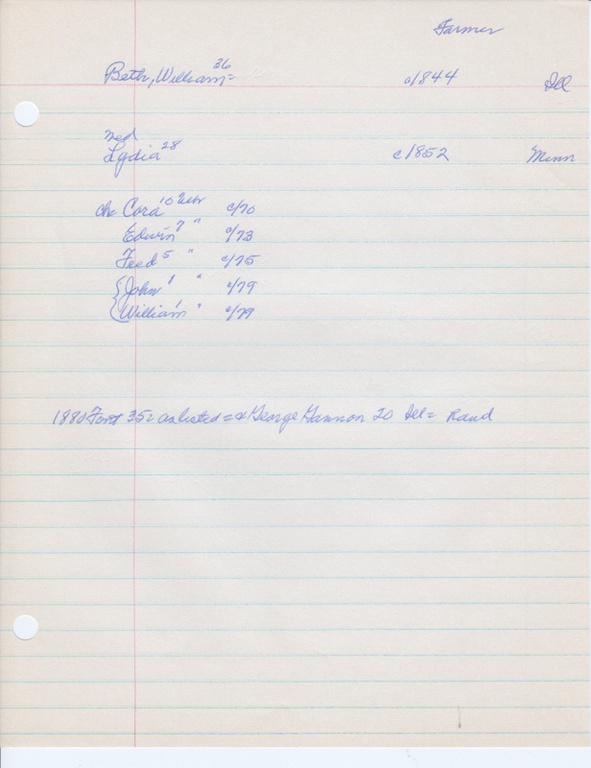 Farmer
Beth, William= 36 c1844 Ill
med
Lydia 28 c1852 Minn
ch= Cora 10 Nebr c/70
Edwin 7 " c/73
Fred 5 " c/75
{John 1 " c/79
{William 1 " c/79
1880 35= as listed = & George Gannon 20 Ill= Rand